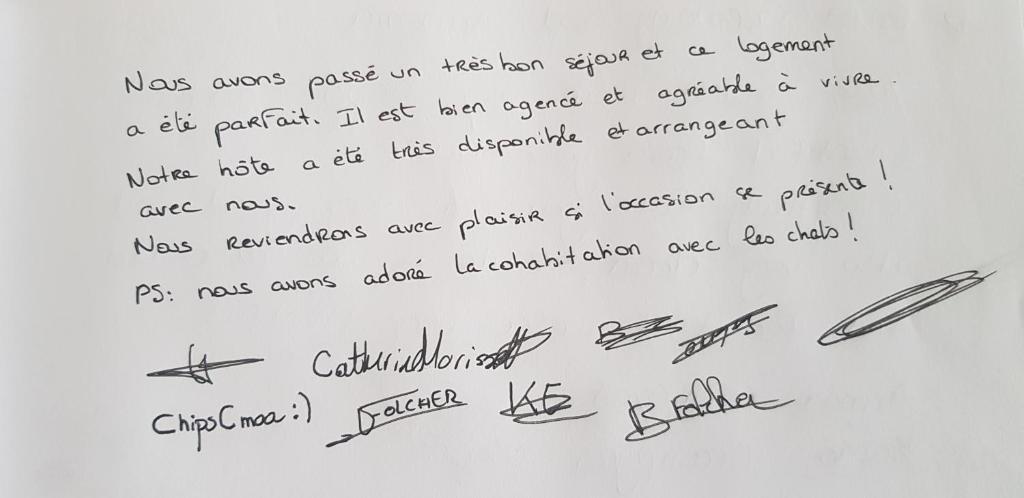 Nous avons passé un très bon séjour et ce logement
a été parfait. Il est bien agencé et agréable à vivre.
Notre hôte a été très disponible et arrangeant
avec nous.
Nous reviendrons avec plaisir si l'occasion se présente !
PS: nous avons adoré la cohabitation avec les chats !
ChipsCmoa :) FOLCHER KE B Folcher